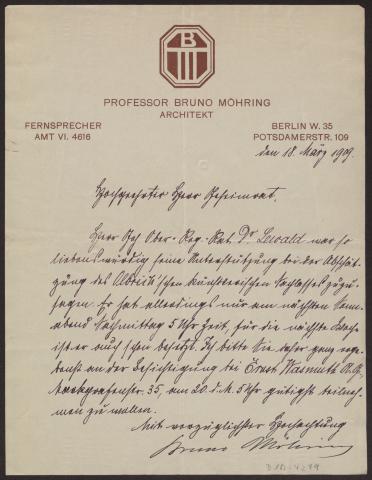 B
PROFESSOR BRUNO MÖHRING
ARCHITEKT
FERNSPRECHER
AMT VI. 4616
BERLIN W. 35
POTSDAMERSTR. 109
den 18. März 1909.
Hochgeehrter Herr Geheimrat.
Herr Geh Ober-Reg-Rat Dr. Lewald war so
liebenswürdig seine Unterstützung bei der Abschät-
zung des Olbrich'schen künstlerischen Nachlasses zuzu-
sagen. Er hat allerdings nur am nächsten Sonn-
abend Nachmittag 5 Uhr Zeit, für die nächste Woche
ist er auch schon besetzt. Ich bitte Sie daher ganz erge-
benst an der Besichtigung bei Ernst Wasmuth A.G.
Markgrafenstr. 35, am 20. d. M. 5 Uhr gütigst teilneh-
men zu wollen.
Mit vorzüglichster Hochachtung
Bruno Möhring